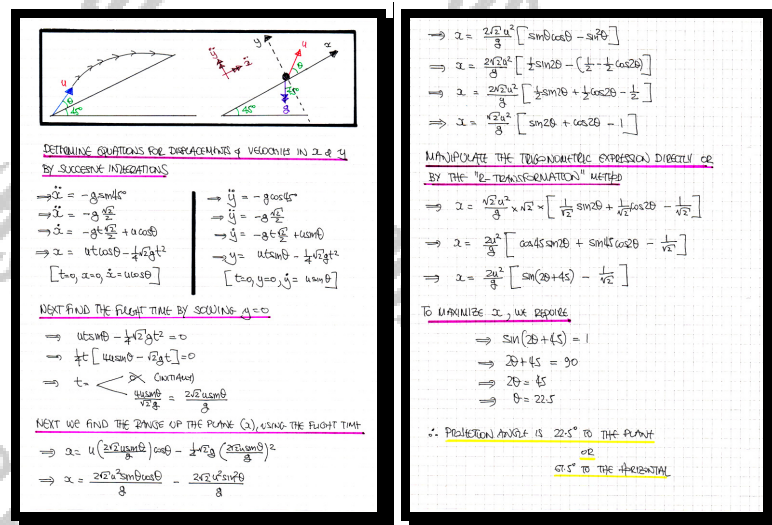 y
x
u
θ
45°
g
ÿ
ẍ
u
θ
45°
45°
DETERMINE EQUATIONS FOR DISPLACEMENTS & VELOCITIES IN x & y
BY SUCCESSIVE INTEGRATIONS
⇒ ẍ = -g sin45°
⇒ ẍ = -g √2/2
⇒ ẋ = -gt √2/2 + ucosθ
⇒ x = utcosθ - 1/4√2gt²
[t=0, x=0, ẋ=ucosθ]
⇒ ÿ = -gcos45°
⇒ ÿ = -g √2/2
⇒ ẏ = -gt √2/2 + usinθ
⇒ y = utsinθ - 1/4√2gt²
[t=0, y=0, ẏ = usinθ]
NEXT FIND THE FLIGHT TIME BY SOLVING y=0
⇒ utsinθ - 1/4√2gt² = 0
⇒ 1/4t[4usinθ - √2gt] = 0
⇒ t = 0 (INITIALLY)
4usinθ/√2g = 2√2usinθ/g
NEXT WE FIND THE RANGE UP THE PLANE (x), USING THE FLIGHT TIME
⇒ x = u(2√2usinθ/g)cosθ - 1/4√2g(2√2usinθ/g)²
⇒ x = 2√2u²sinθcosθ/g - 2√2u²sin²θ/g
⇒ x = 2√2u²/g [sinθcosθ - sin²θ]
⇒ x = 2√2u²/g [1/2sin2θ - (1/2 - 1/2cos2θ)]
⇒ x = 2√2u²/g [1/2sin2θ + 1/2cos2θ - 1/2]
⇒ x = √2u²/g [sin2θ + cos2θ - 1]
MANIPULATE THE TRIGONOMETRIC EXPRESSION DIRECTLY OR
BY THE "R-TRANSFORMATION" METHOD
⇒ x = √2u²/g × √2 × [1/√2 sin2θ + 1/√2 cos2θ - 1/√2]
⇒ x = 2u²/g [cos45sin2θ + sin45cos2θ - 1/√2]
⇒ x = 2u²/g [sin(2θ+45) - 1/√2]
TO MAXIMIZE x, WE REQUIRE
⇒ sin(2θ+45) = 1
⇒ 2θ+45 = 90
⇒ 2θ = 45
⇒ θ = 22.5
∴ PROJECTION ANGLE IS 22.5° TO THE PLANE
OR
67.5° TO THE HORIZONTAL